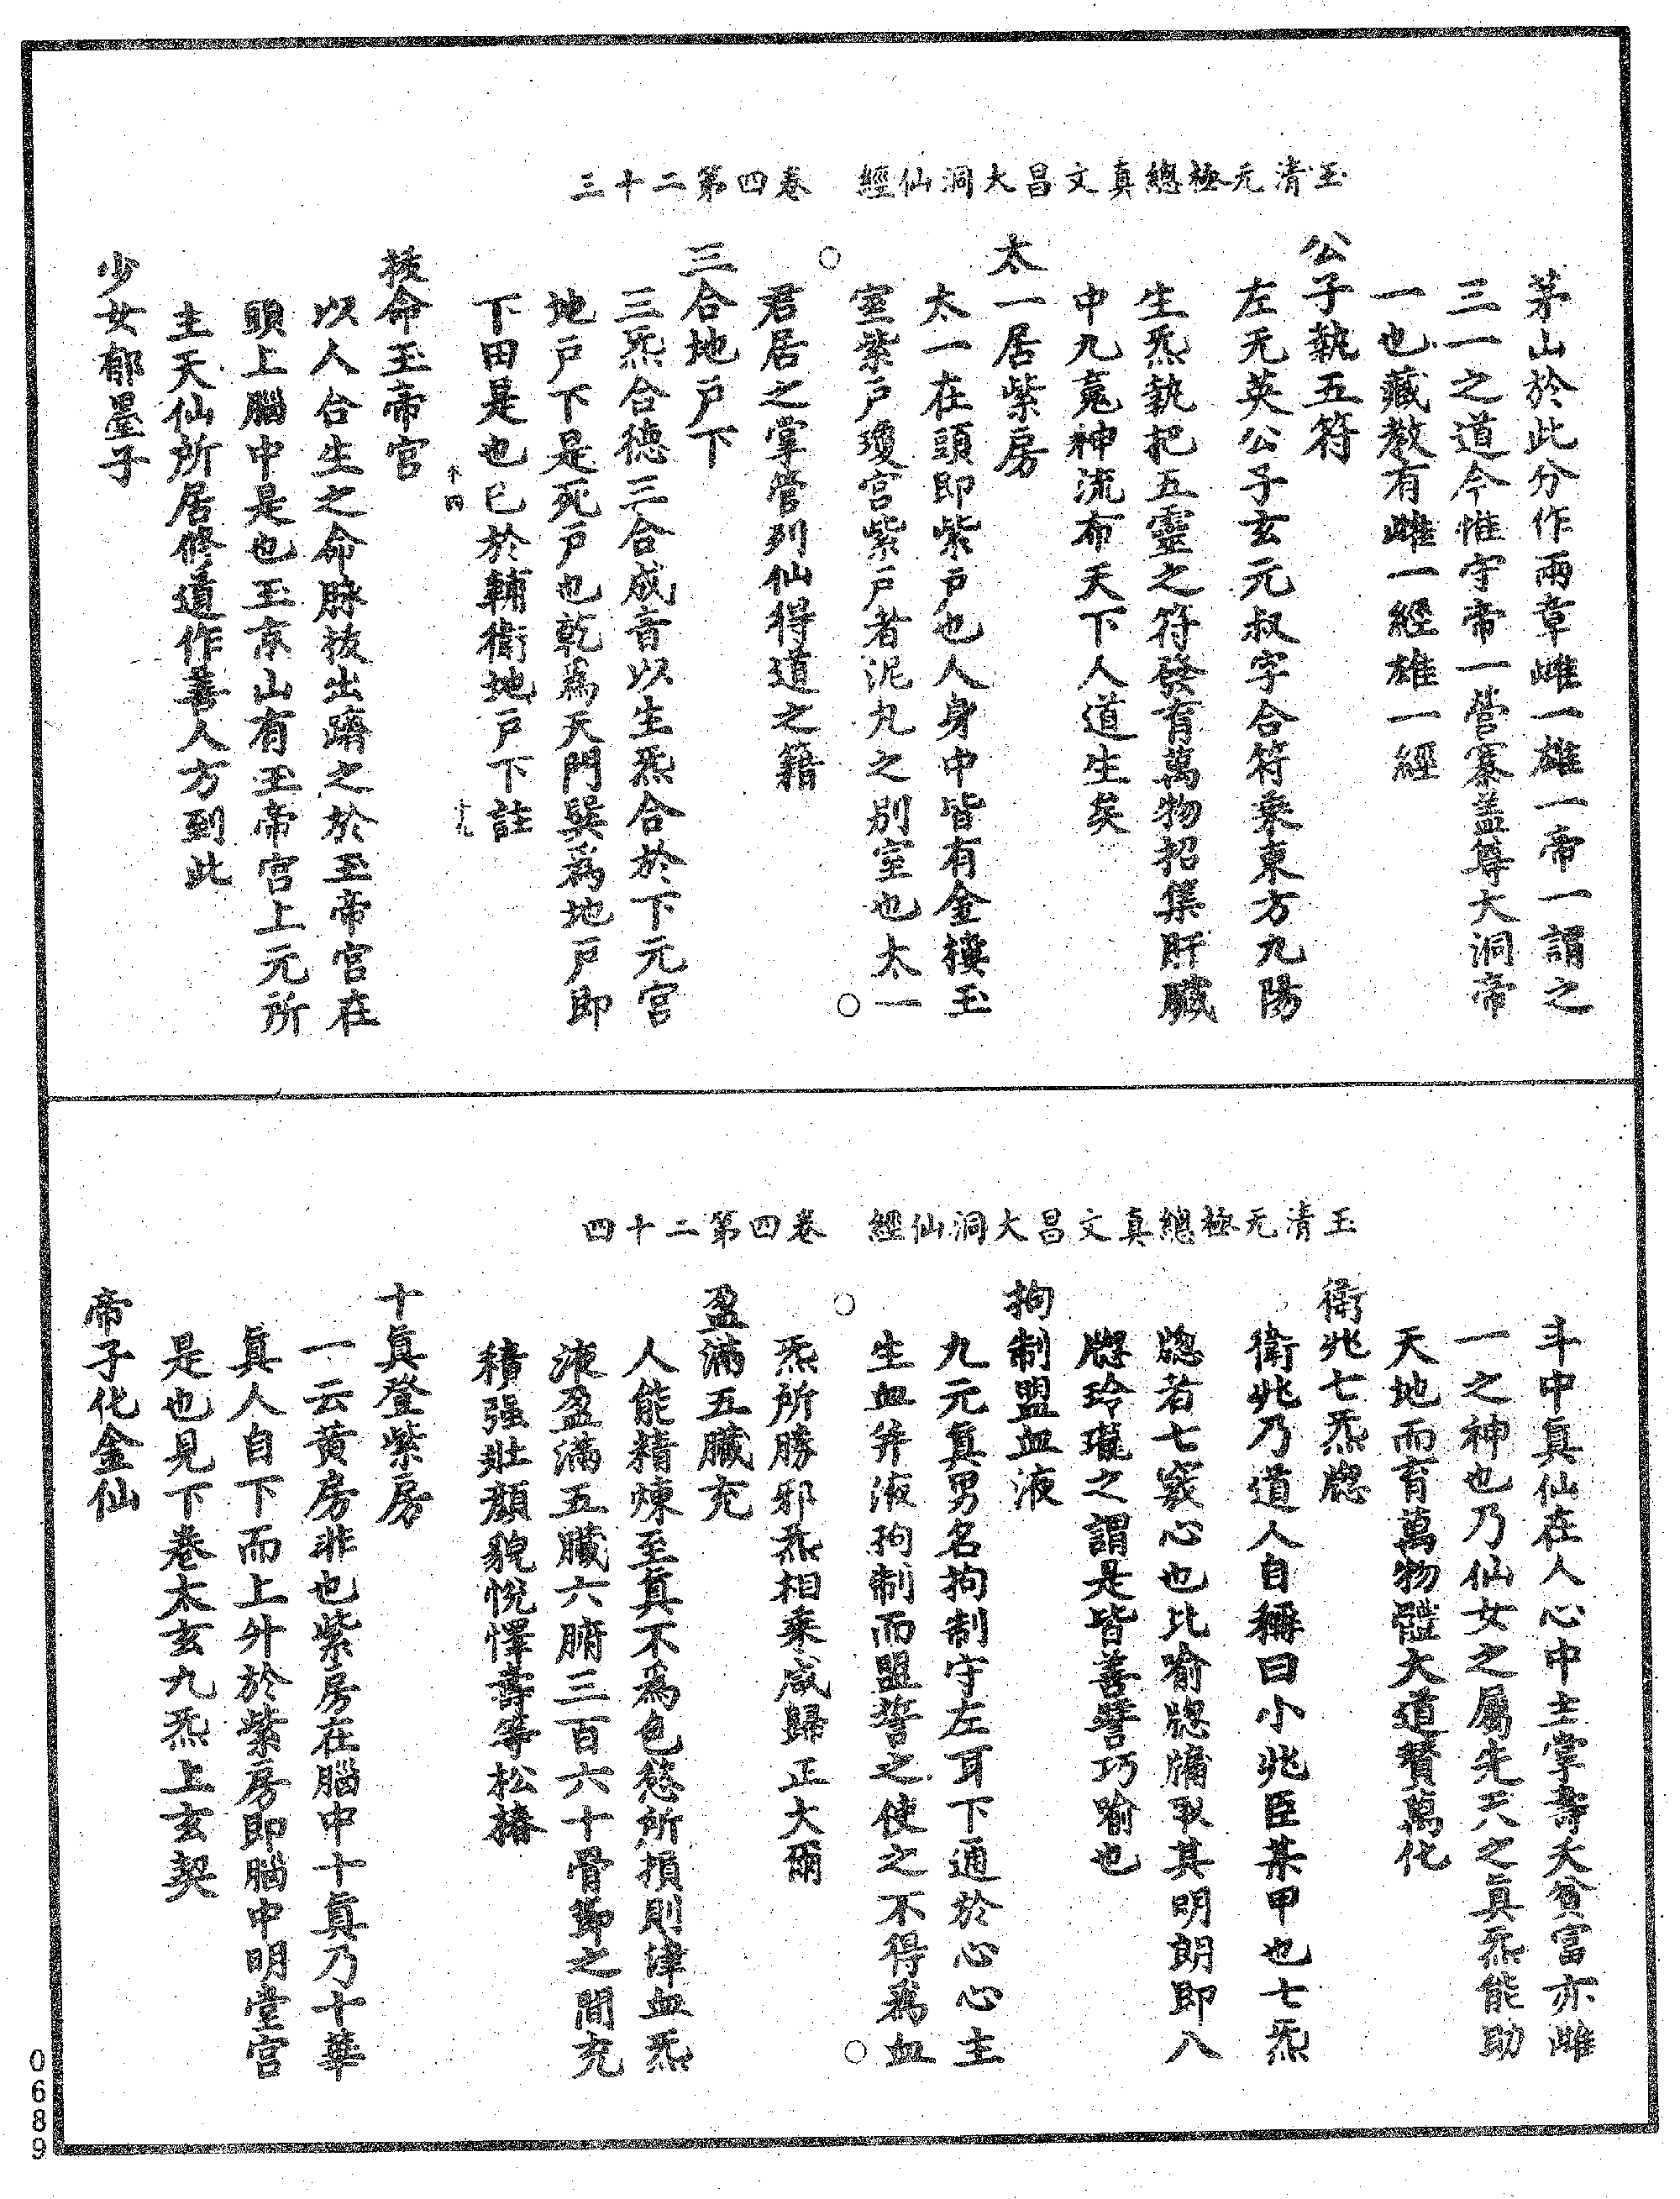 玉清无極總真文昌大洞仙經　卷四第二十三
茅山於此分作兩章雌一雄一帝一謂之
三一之道今惟守帝一營寨蓋尊大洞帝
一也藏教有雌一經雄一經
公子執五符
左无英公子玄元叔字合符乘東方九陽
生炁執把五靈之符發育萬物招集肝臟
中九䰟神流布天下人道生矣
太一居紫房
太一在頭即紫戶也人身中皆有金樓玉
室紫戶瓊宮紫戶者泥丸之別室也太一
君居之掌管列仙得道之籍
三合地戶下
三炁合德三合成音以生炁合於下元宮
地戶下是死戶也乾爲天門巽爲地戶即
下田是也已於輔衛地戶下註
拔命玉帝宮
以人合生之命脉拔出躋之於玉帝宮在
頭上腦中是也玉京山有玉帝宮上元所
主天仙所居修道作善人方到此
少女郁墨子
玉清无極總真文昌大洞仙經　卷四第二十四
斗中真仙在人心中主掌壽夭貧富亦雌
一之神也乃仙女之屬先天之真炁能助
天地而育萬物體大道贊萬化
衛兆七炁牎
衛兆乃道人自稱曰小兆臣某甲也七炁
牎若七竅心也比喻牎牖取其明朗即八
牎玲瓏之謂是皆善譬巧喻也
拘制盟血液
九元真男名拘制守左耳下通於心心主
生血并液拘制而盟誓之使之不得爲血
炁所勝邪炁相乘咸歸正大爾
盈滿五臟充
人能精煉至真不爲色慾所損則津血炁
液盈滿五臟六腑三百六十骨節之間充
積强壯顏貌悅懌壽等松椿
十真登紫房
一云黃房非也紫房在腦中十真乃十華
真人自下而上升於紫房即腦中明堂宮
是也見下卷太玄九炁上玄契
帝子化金仙
0689